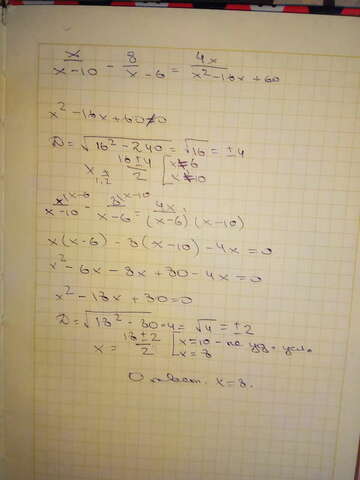 x/x-10 - 8/x-6 = 4x/x²-16x+60
x²-16x+60≠0
D=√16²-240=√16=±4
x 1,2 = 16±4/2 [x≠6
x≠10
x^x-6/x-10 - 8^x-10/x-6 = 4x/(x-6)(x-10)
x(x-6)-8(x-10)-4x=0
x²-6x-8x+80-4x=0
x²-18x+80=0
D=√18²-80·4=√4=±2
x=18±2/2 [x=10-не уд. усл.
x=8
Ответ: x=8.